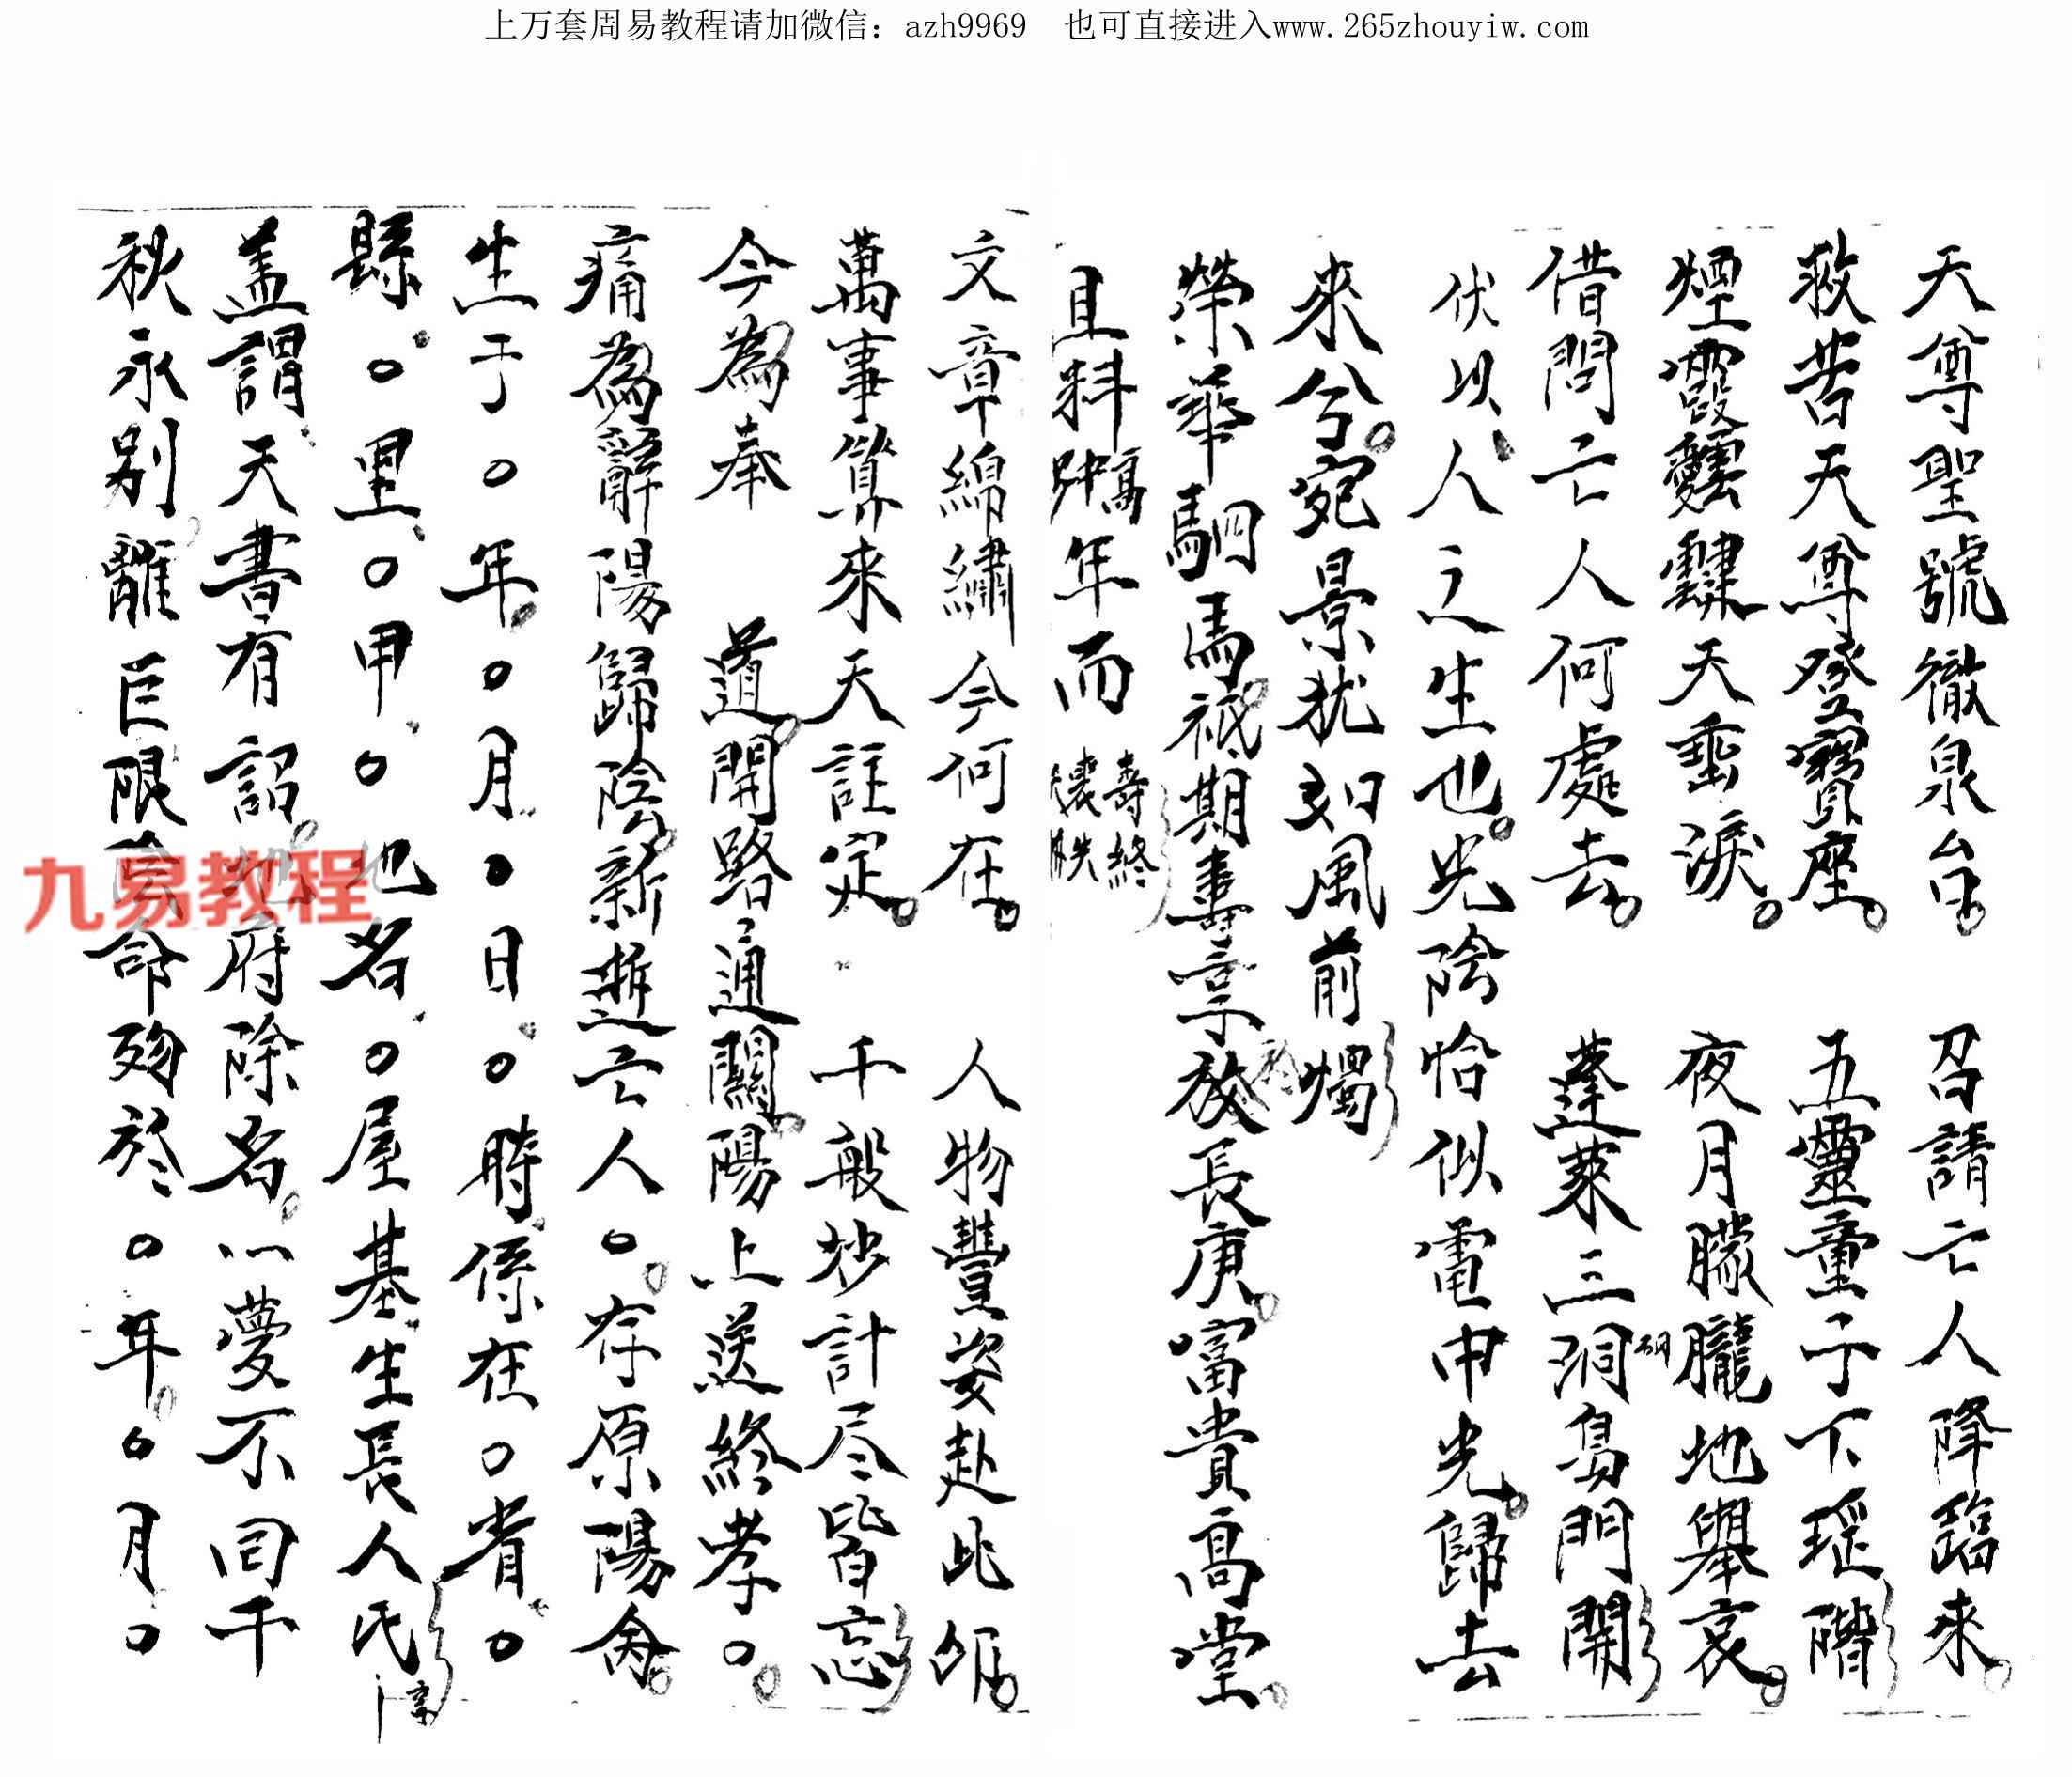 上万套周易教程请加微信：azh9969　也可直接进入www.265zhouyiw.com
天尊聖號徹泉台。　召請亡人降臨来。
救苦天尊登寳座。　五靈童子下瑶階
煙霞靉靆天垂淚。　夜月朦朧地舉哀。
借問亡人何處去。　蓬萊三洞島門開
伏以人之生也。光陰恰似電中光。歸去
來兮。宛景犹如風前燭
榮華駟馬祗期壽享放長庚。富貴高堂。
且料年而 壽終
文章綿繡今何在。　人物豐姿赴此
萬事算來天註定。　千般妙計尽皆忘
今為奉　道開路通關。陽上送終孝。○。
痛為辭陽歸陰。新逝亡人○。存原陽命。
生于○年。○月○日。○時係在○省。○
縣。○里○甲。○地名。○屋基生長人民
盖謂天書有詔。地府除名。一夢不回千
秋永别離。巨限命殁於○年。○月○
九易教程